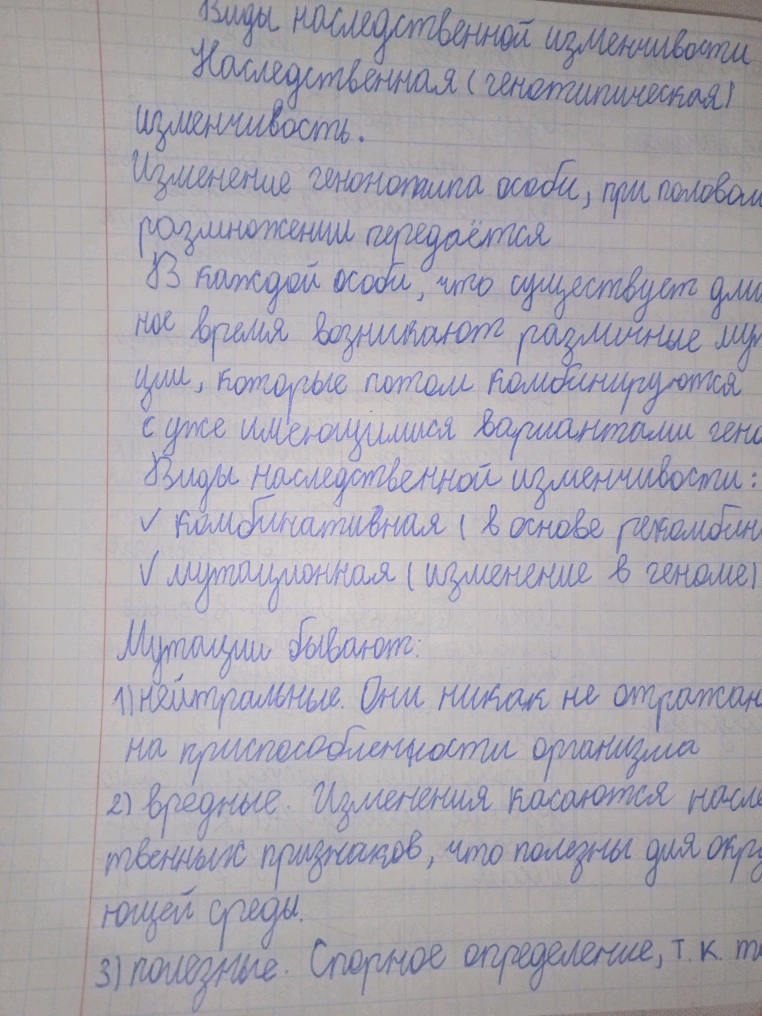 Виды наследственной изменчивости
Наследственная (генотипическая)
изменчивость.
Изменение генонотипа особи, при половом
размножении передаётся
В каждой особи, что существует дли
ное время возникают различные му
ции, которые потом комбинируются
с уже имеющимися вариантами гено
Виды наследственной изменчивости:
✓ комбинативная (в основе рекомбин
✓ мутационная (изменение в геноме)
Мутации бывают:
1) нейтральные. Они никак не отражаю
на приспособленности организма
2) вредные. Изменения касаются насле
твенных признаков, что полезны для окру
ющей среды.
3) полезные. Спорное определение, т.к. та